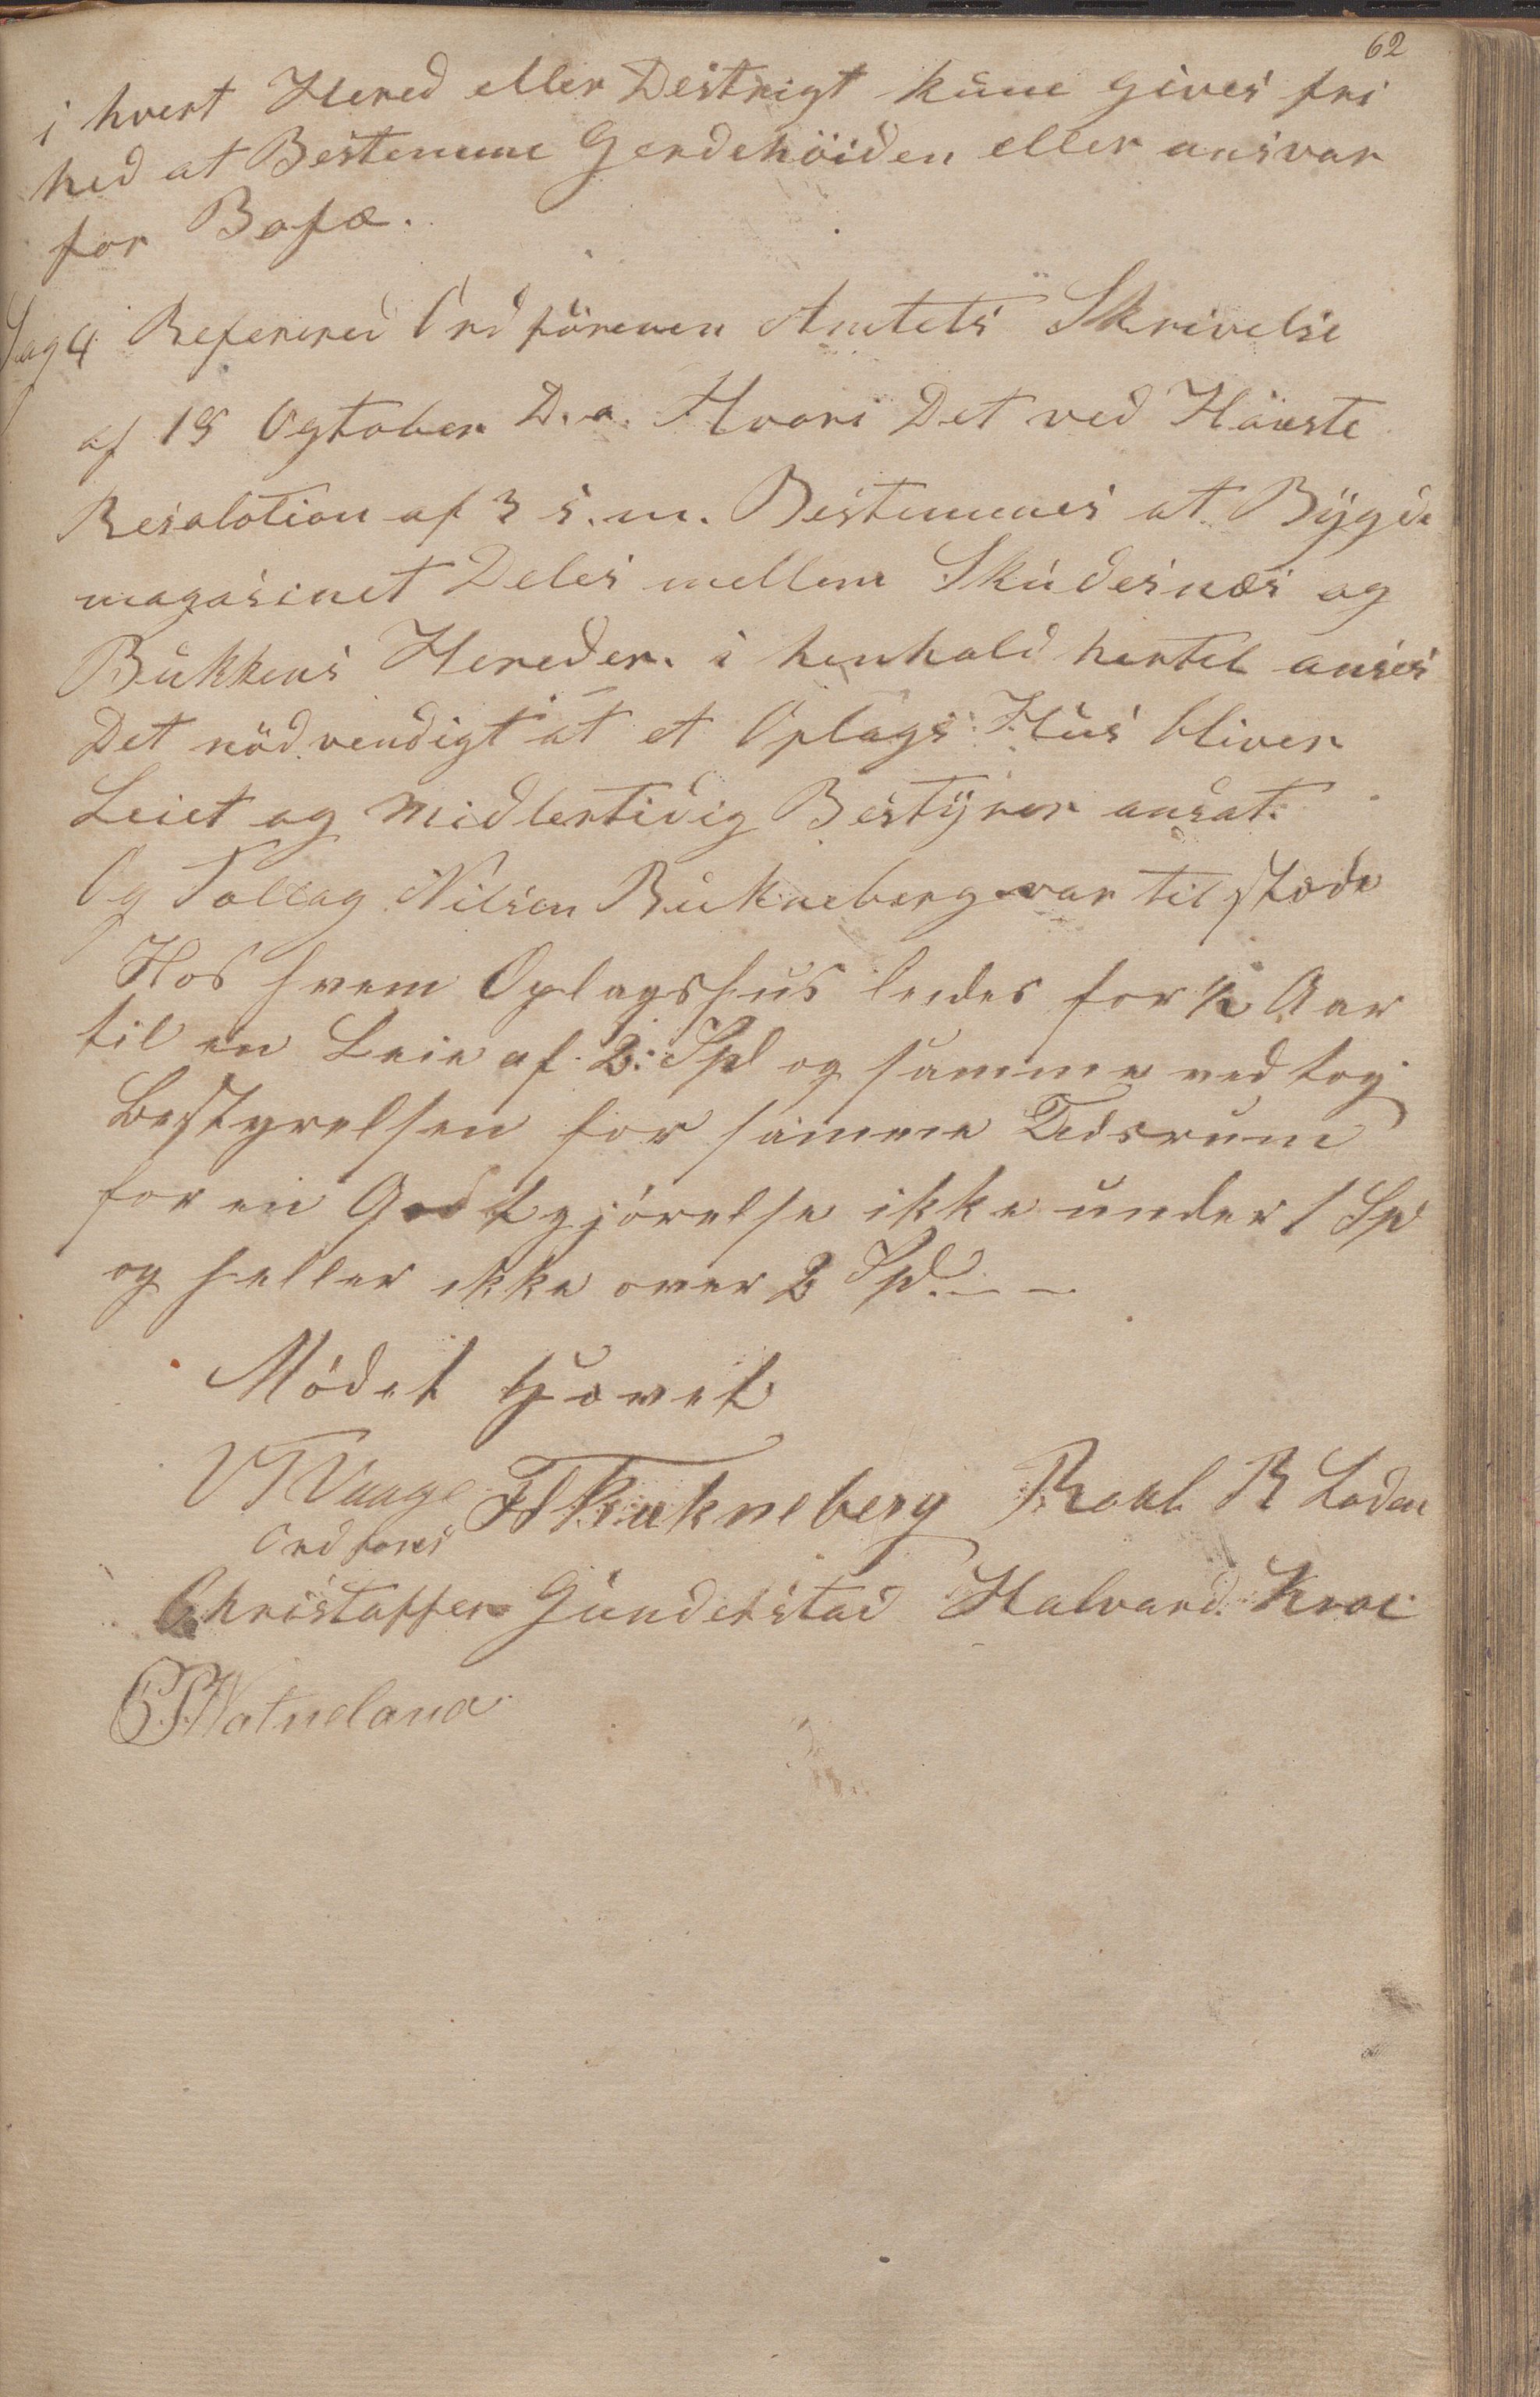 62
i hvert Hered eller Destrigt kune gives fri
hed at Bestemme Gerdehöiden eller ansvar
for Bofæ.
Sag 4 Referered Ordföreren Amtets Skrivelse
af 19 Ogtober D.a. Hvori Det ved Höieste
Resolotion af 3 s.m. Bestemmes at Bÿgde
magasinet Deles mellem Skudesnæs og
Bukkens Hereder. i henhold hertel anses
Det nödvendigt at et Oplags Hus bliver
Leiet og midlertidig Bestÿrer ansat.
Og Tollag Nilsen Bukneberg var til stæde
Hos hvem Oplagshus leides for ½ Aar
til en Leie af 2 Spd og samme vedtog
Bestyrelsen for samme Tidsrum
for en Godtgjörelse ikke under 1 Spd
og heller ikke over 2 Spd. — —
Mödet Hævet
V T Vaage
Ordförer
T N Bukneberg Roal R Lodan
Christoffer Gunderstad Halvard Kroe
Watneland